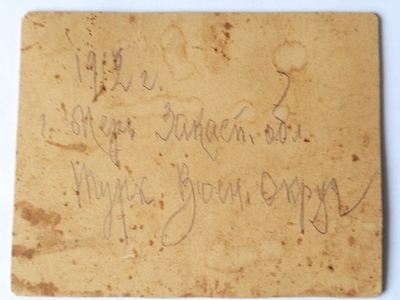 1912 г.
г. Мерв Закасп. обл.
Турк. Воен. Округ